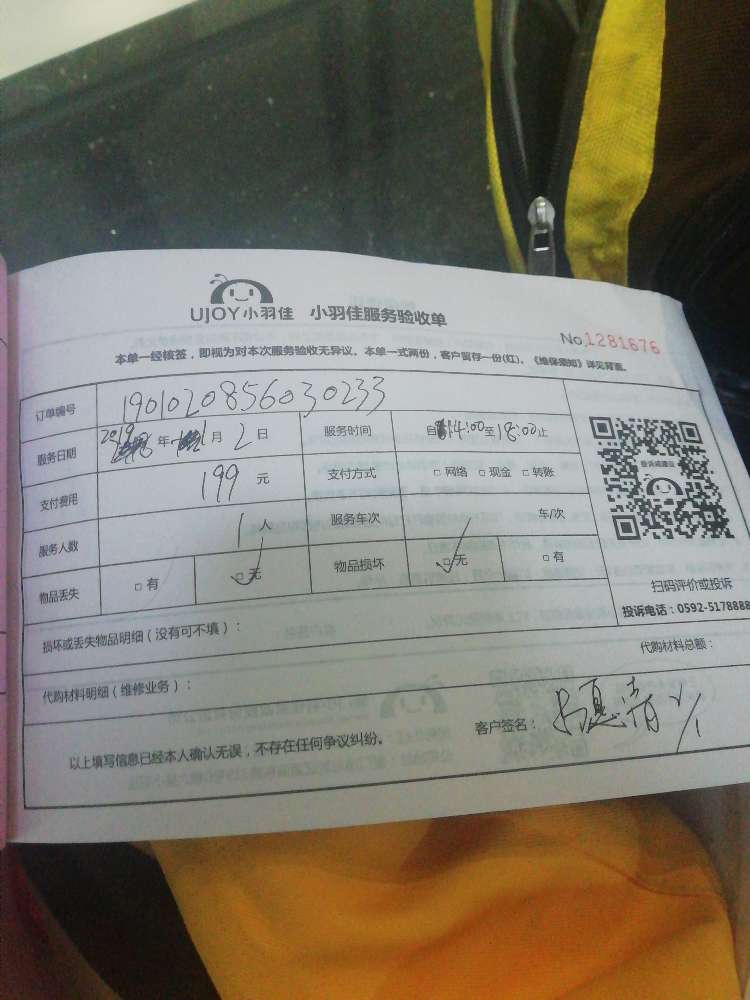 UJOY小羽佳 小羽佳服务验收单
No.1281676
本单一经核签，即视为对本次服务验收无异议。本单一式两份，客户留存一份(红)，《维保须知》详见背面。
订单编号 190102085603 0233
服务日期 2019年1月2日 服务时间 自14:00至18:00止
支付费用 199元 支付方式 □网络 □现金 □转账
服务人数 1人 服务车次 车/次
物品丢失 □有 □无 物品损坏 □无 □有
扫码评价或投诉
投诉电话：0592-5178888
损坏或丢失物品明细（没有可不填）：
代购材料明细（维修业务）： 代购材料总额：
以上填写信息已经本人确认无误，不存在任何争议纠纷。 客户签名：